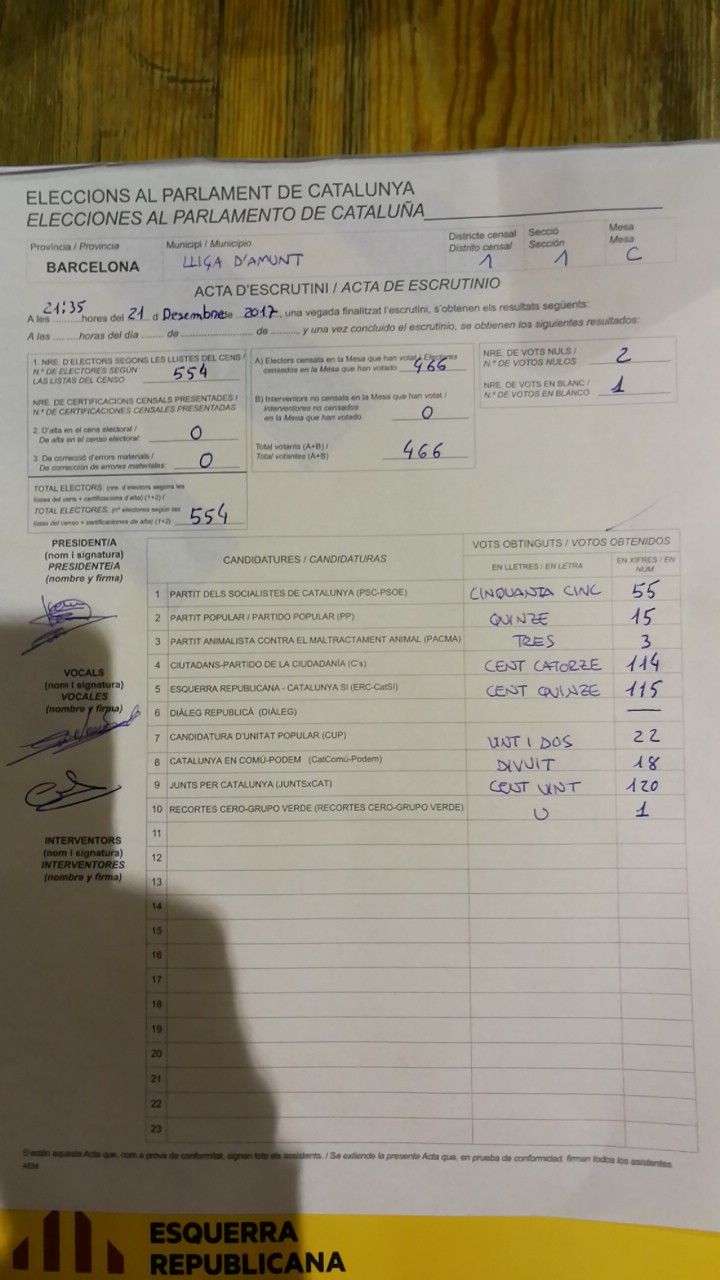 ELECCIONS AL PARLAMENT DE CATALUNYA
ELECCIONES AL PARLAMENTO DE CATALUÑA
Província / Provincia
BARCELONA
Municipi / Municipio
LLIÇA D'AMUNT
Districte censal
Distrito censal
1
Secció
Sección
1
Mesa
Mesa
C
ACTA D'ESCRUTINI / ACTA DE ESCRUTINIO
21:35
A les .........hores del 21 d Desembre de 2017, una vegada finalitzat l'escrutini, s'obtenen els resultats següents:
A las .........horas del día ....... de ......................... de ........., y una vez concluido el escrutinio, se obtienen los siguientes resultados:
1. NRE. D'ELECTORS SEGONS LES LLISTES DEL CENS /
N.º DE ELECTORES SEGÚN
LAS LISTAS DEL CENSO
554
NRE. DE CERTIFICACIONS CENSALS PRESENTADES /
N.º DE CERTIFICACIONES CENSALES PRESENTADAS
2. D'alta en el cens electoral /
De alta en el censo electoral:
0
3. De correcció d'errors materials /
De corrección de errores materiales:
0
TOTAL ELECTORS: (nre. d'electors segons les
llistes del cens + certificacions d'alta) (1+2) /
TOTAL ELECTORES: (nº electores según las
listas del censo + certificaciones de alta) (1+2)
554
A) Electors censats en la Mesa que han votat / Electores
censados en la Mesa que han votado
466
B) Interventors no censats en la Mesa que han votat /
Interventores no censados
en la Mesa que han votado
0
Total votants (A+B) /
Total votantes (A+B)
466
NRE. DE VOTS NULS /
N.º DE VOTOS NULOS
2
NRE. DE VOTS EN BLANC /
N.º DE VOTOS EN BLANCO
1
PRESIDENT/A
(nom i signatura)
PRESIDENTE/A
(nombre y firma)
VOCALS
(nom i signatura)
VOCALES
(nombre y firma)
INTERVENTORS
(nom i signatura)
INTERVENTORES
(nombre y firma)
CANDIDATURES / CANDIDATURAS
VOTS OBTINGUTS / VOTOS OBTENIDOS
EN LLETRES / EN LETRA
EN XIFRES / EN NÚM.
1 PARTIT DELS SOCIALISTES DE CATALUNYA (PSC-PSOE) CINQUANTA CINC 55
2 PARTIT POPULAR / PARTIDO POPULAR (PP) QUINZE 15
3 PARTIT ANIMALISTA CONTRA EL MALTRACTAMENT ANIMAL (PACMA) TRES 3
4 CIUTADANS-PARTIDO DE LA CIUDADANÍA (C's) CENT CATORZE 114
5 ESQUERRA REPUBLICANA - CATALUNYA SI (ERC-CatSI) CENT QUINZE 115
6 DIÀLEG REPUBLICÀ (DIÀLEG) —
7 CANDIDATURA D'UNITAT POPULAR (CUP) VINT I DOS 22
8 CATALUNYA EN COMÚ-PODEM (CatComú-Podem) DIVUIT 18
9 JUNTS PER CATALUNYA (JUNTSxCAT) CENT VINT 120
10 RECORTES CERO-GRUPO VERDE (RECORTES CERO-GRUPO VERDE) U 1
11
12
13
14
15
16
17
18
19
20
21
22
23
S'estén aquesta Acta que, com a prova de conformitat, signen tots els assistents. / Se extiende la presente Acta que, en prueba de conformidad, firman todos los asistentes.
AEM
ESQUERRA
REPUBLICANA